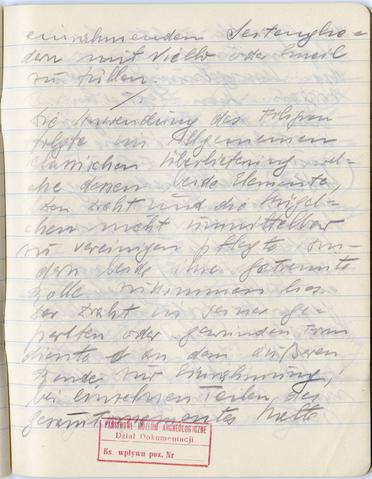 einnehmenden Seitenglie-
dern mit Niello oder Email
zu füllen.
Die Anwendung des Filigran
folgte im Allgemeinen
classischen Überlieferung wel-
che denen beide Elemente,
den Draht und die Kügel-
chen nicht unmittelbar
zu vereinigen pflegte son-
dern beide ihre getrennte
Rolle zukommen lies
der Draht in seiner ge-
perlten oder gewunden Form
diente er an dem äußeren
Rande zur Einrahmung,
bei einzelnen Teilen des
gesamtornamentes hatte
PAŃSTWOWE MUZEUM ARCHEOLOGICZNE
Dział Dokumentacji
Ks. wpływu poz. Nr